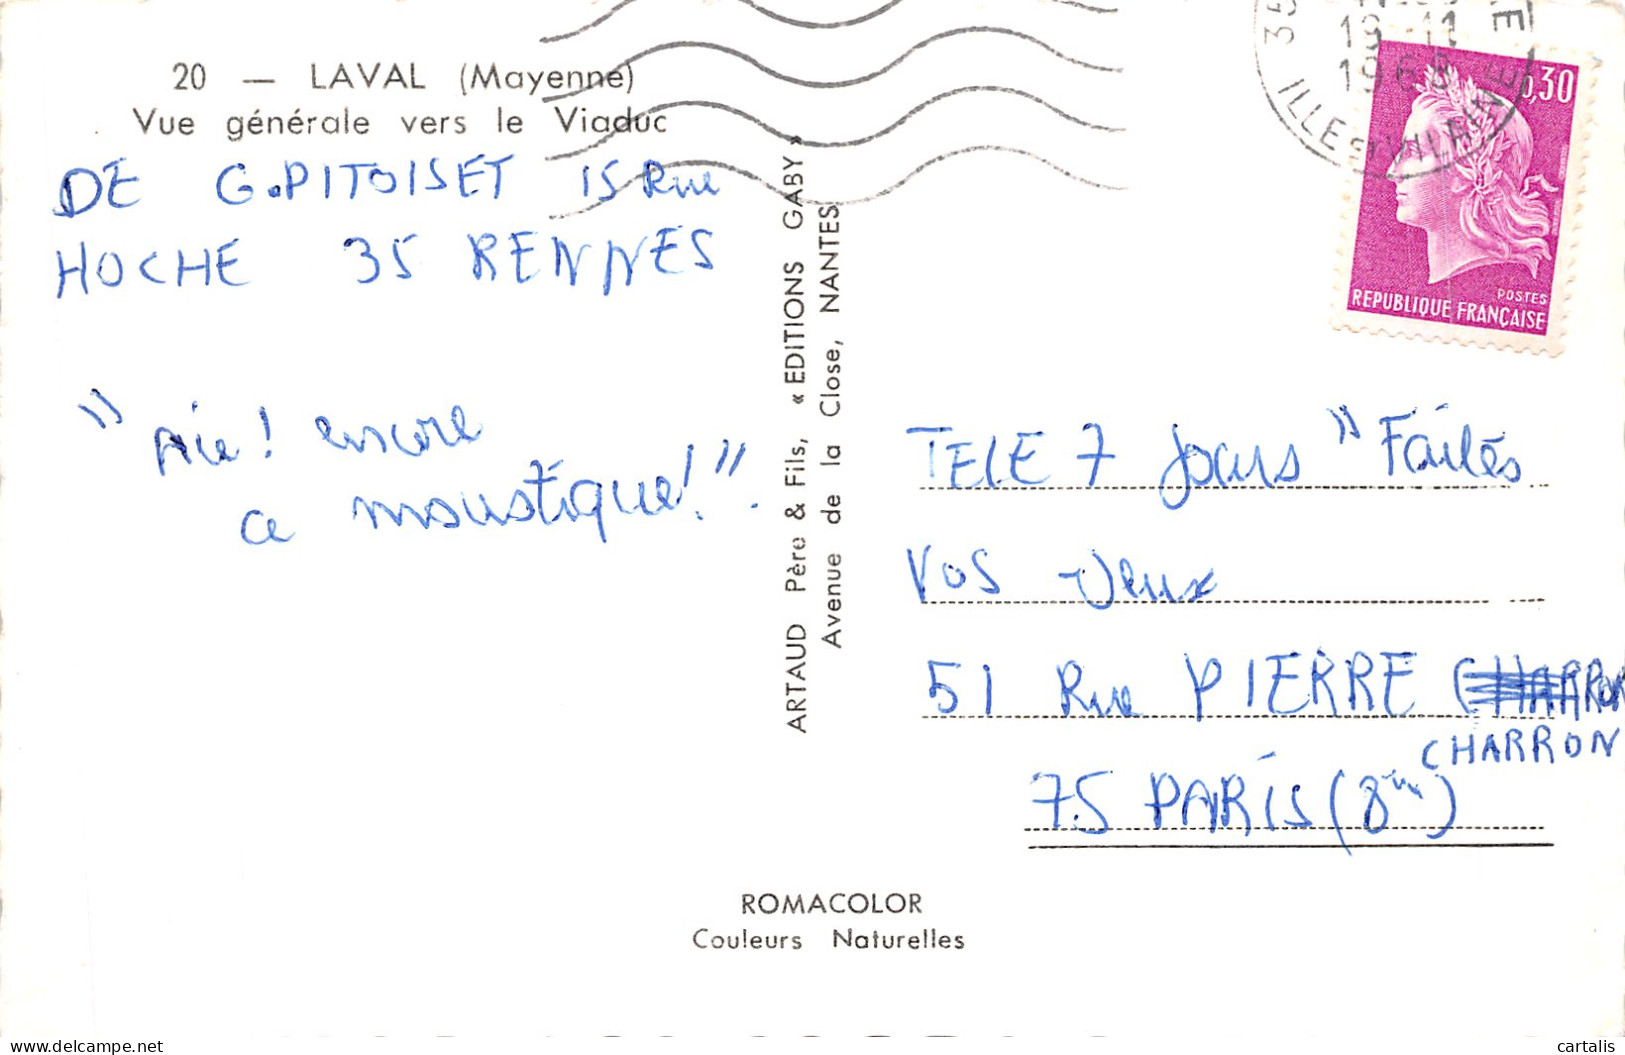 20 — LAVAL (Mayenne)
Vue générale vers le Viaduc
DE G.PITOISET 15 Rue
HOCHE 35 RENNES
" Aïe! encore
ce moustique!".
ARTAUD Père & Fils, « EDITIONS GABY »
Avenue de la Close, NANTES
35
19-11
ILLE ET VILAINE
0,30
POSTES
REPUBLIQUE FRANÇAISE
TELE 7 Jours " Faites
vos Jeux
51 Rue PIERRE CHARRON
CHARRON
75 PARIS (8me)
ROMACOLOR
Couleurs Naturelles
www.delcampe.net
cartalis